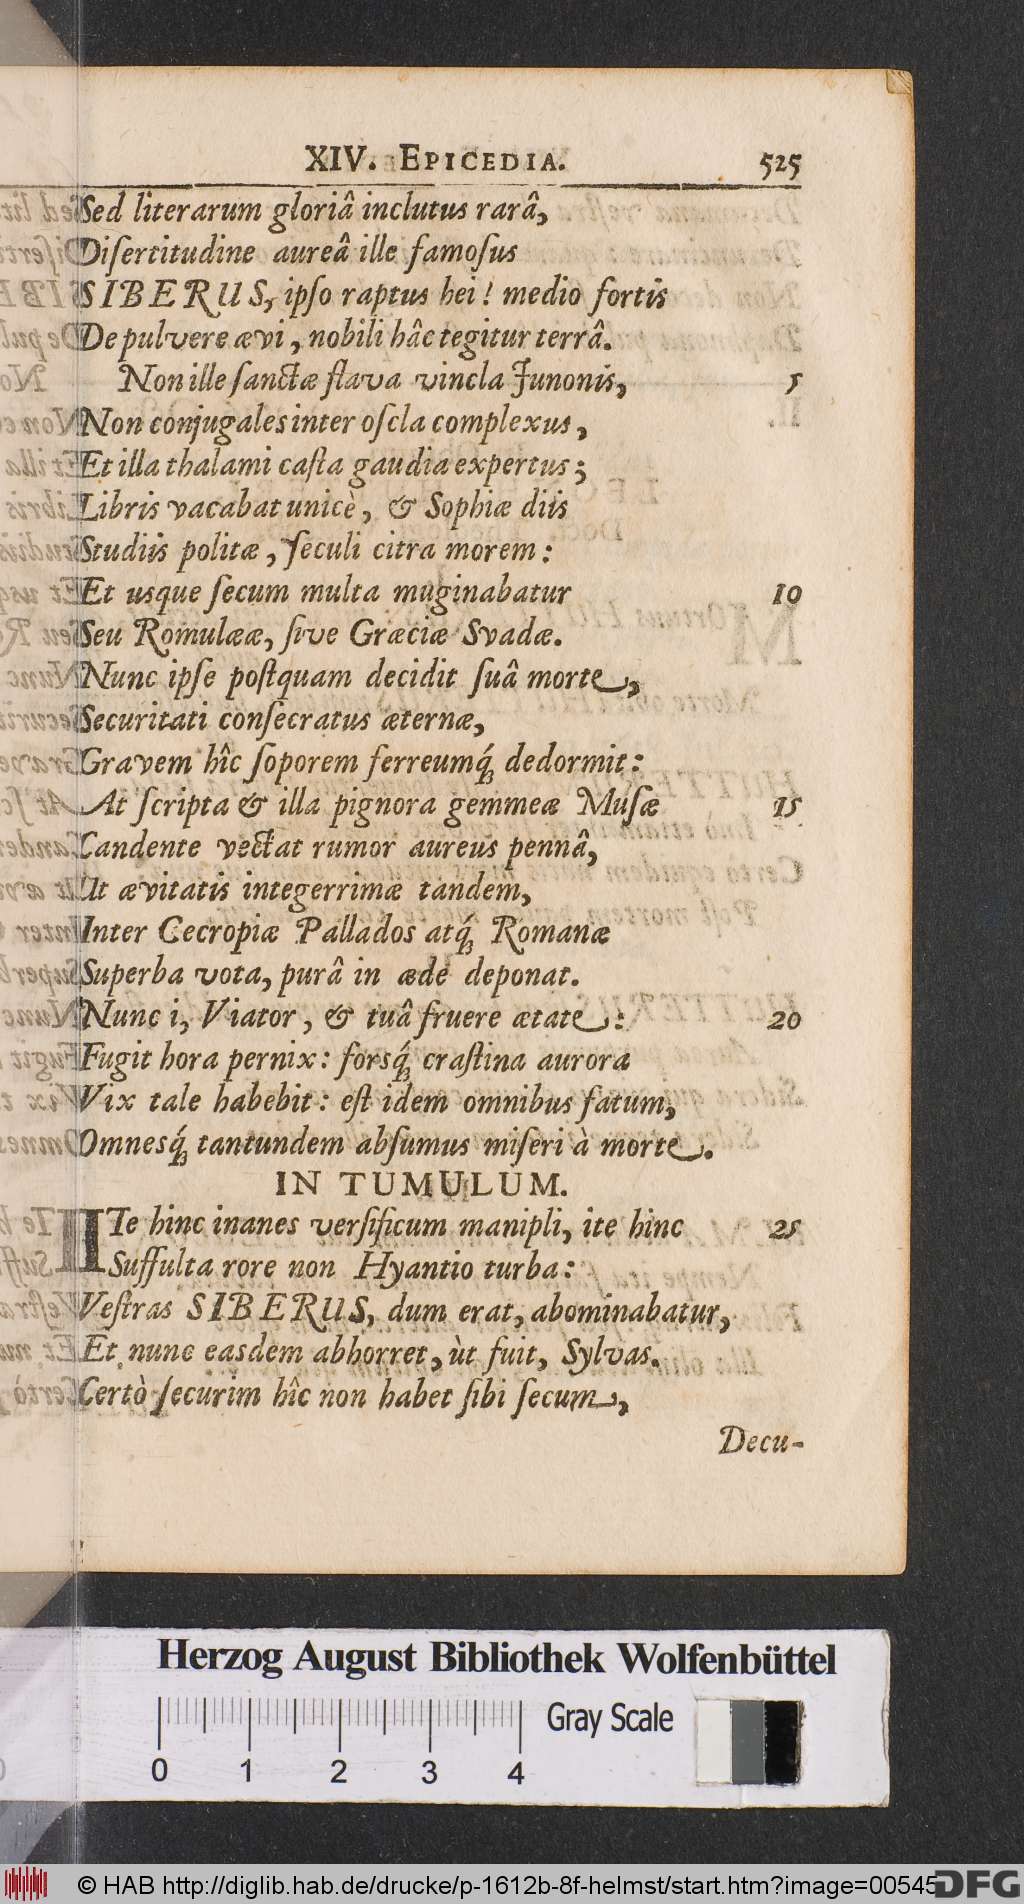 XIV. EPICEDIA. 525
Sed literarum gloriâ inclutus rarâ,
Diſertitudine aureâ ille famoſus
SIBERUS, ipſo raptus hei! medio fortis
De pulvere ævi, nobili hâc tegitur terrâ.
Non ille ſanctæ flava vincla Junonis, 5
Non conjugales inter oſcla complexus,
Et illa thalami caſta gaudia expertus;
Libris vacabat unicè, & Sophiæ diis
Studiis politæ, ſeculi citra morem:
Et usque ſecum multa muginabatur 10
Seu Romulææ, ſive Græciæ Svadæ.
Nunc ipſe poſtquam decidit ſuâ morte,
Securitati conſecratus æternæ,
Gravem hîc ſoporem ferreumq́; dedormit:
At ſcripta & illa pignora gemmeæ Muſæ 15
Candente vectat rumor aureus pennâ,
Ut ævitatis integerrimæ tandem,
Inter Cecropiæ Pallados atq́; Romanæ
Superba vota, purâ in æde deponat.
Nunc i, Viator, & tuâ fruere ætate: 20
Fugit hora pernix: forsq́; craſtina aurora
Vix tale habebit: eſt idem omnibus fatum,
Omnesq́; tantundem abſumus miſeri à morte.
IN TUMULUM.
ITe hinc inanes verſificum manipli, ite hinc 25
Suffulta rore non Hyantio turba:
Veſtras SIBERUS, dum erat, abominabatur,
Et nunc easdem abhorret, ùt fuit, Sylvas.
Certò ſecurim hîc non habet ſibi ſecum,
Decu-
Herzog August Bibliothek Wolfenbüttel
Gray Scale
0 1 2 3 4
© HAB http://diglib.hab.de/drucke/p-1612b-8f-helmst/start.htm?image=00545
DFG